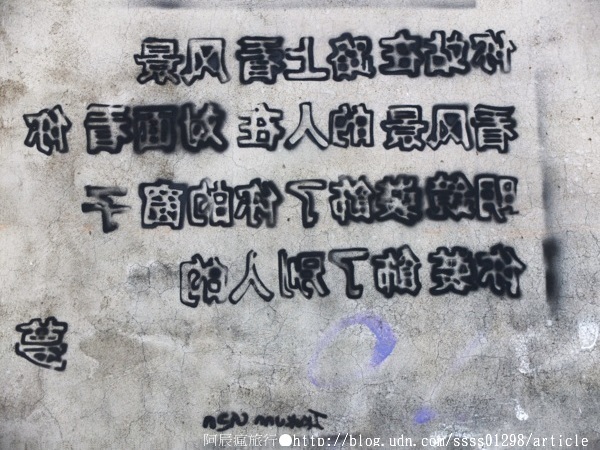 你站在桥上看风景
看风景的人在对面看你
明月装饰了你的窗子
你装饰了别人的
夢
阿辰瘋旅行●http://blog.udn.com/ssss01298/article